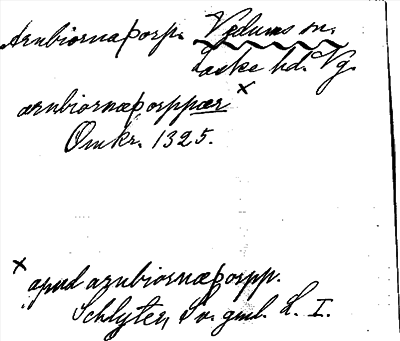 Arnbiornaþorp. Vedums sn.
Laske hd. Vg.
arnbiornæþorppær x
Omkr. 1325.
x apud arnbiornæþorpp.
Schlyter, Sv. gml. L. I.